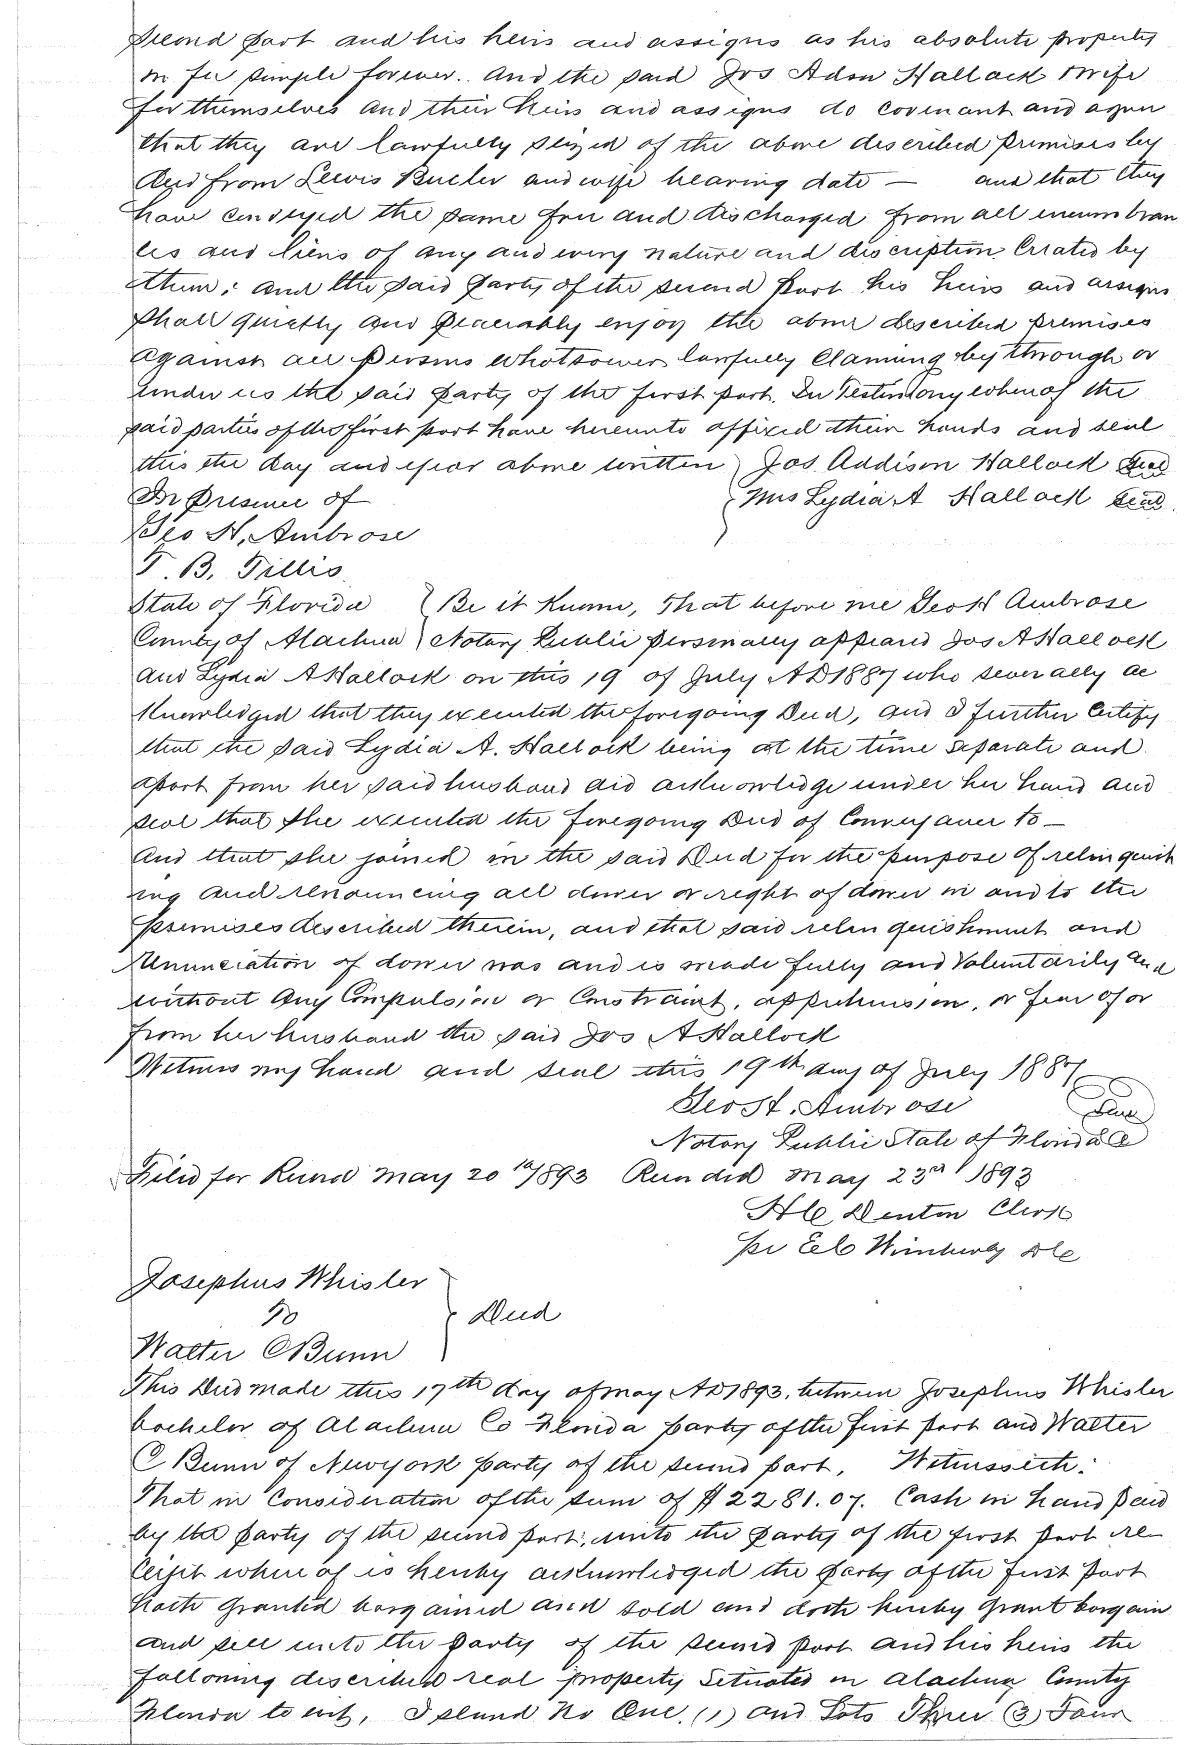 second part and his heirs and assigns as his absolute property
in fee simple forever. And the said Jos Adson Hallock & wife
for themselves and their heirs and assigns do covenant and agree
that they are lawfully seized of the above described premises by
deed from Lewis and wife bearing date — and that they
have conveyed the same free and discharged from all incumbran
ces and liens of any and every nature and discription created by
them; and the said party of the second part his heirs and assigns
shall quietly and peaceably enjoy the above described premises
against all persons whotsoever lawfully claiming by through or
under us the said party of the first part. In Testimony whereof the
said parties of the first part have hereunto affixed their hands and seal
this the day and year above written } Jos. Addison Hallock Seal
In presence of } Mrs Lydia A Hallock Seal
Geo H. Ambrose
T. B. Tillis
State of Florida } Be it Known, That before me Geo H Ambrose
County of Alachua } Notary Public personally appeard Jos A Hallock
and Lydia A Hallock on this 19 of July AD 1887 who severally ac
knowledged that they executed the foregoing Deed, and I further certify
that the said Lydia A. Hallock being at the time separate and
apart from her said husband did acknowledge under her hand and
seal that she executed the foregoing Deed of Conveyance to —
And that she joined in the said Deed for the purpose of relinquish
ing and renouncing all dower or right of dower in and to the
premises described therein, and that said relinquishment and
renunciation of dower was and is made fully and Voluntarily and
without any Compulsion or Constraint, apprehension, or fear of or
from her husband the said Jos A Hallock
Witness my hand and seal this 19th day of July 1887
Geo H. Ambrose Seal
Notary Public State of Florida
Filed for Record May 20th 1893 Recorded May 23rd 1893
H C Denton Clerk
pr E C Wimberly DC
Josephus Whisler
To } Deed
Walter C Bunn
This Deed made this 17th day of May AD 1893, between Josephus Whisler
bachelor of Alachua Co Florida party of the first part and Walter
C Bunn of New york party of the second part, Witnesseth:
That in Consideration of the sum of $2281.07. Cash in hand paid
by the party of the second part, unto the party of the first part re
ceipt where of is hereby acknowledged the party of the first part
hath granted bargained and sold and doth hereby grant bargain
and sell unto the party of the second part and his heirs the
following described real property situated in Alachua County
Florida to wit, Island No One, (1) and Lots Three (3) Four